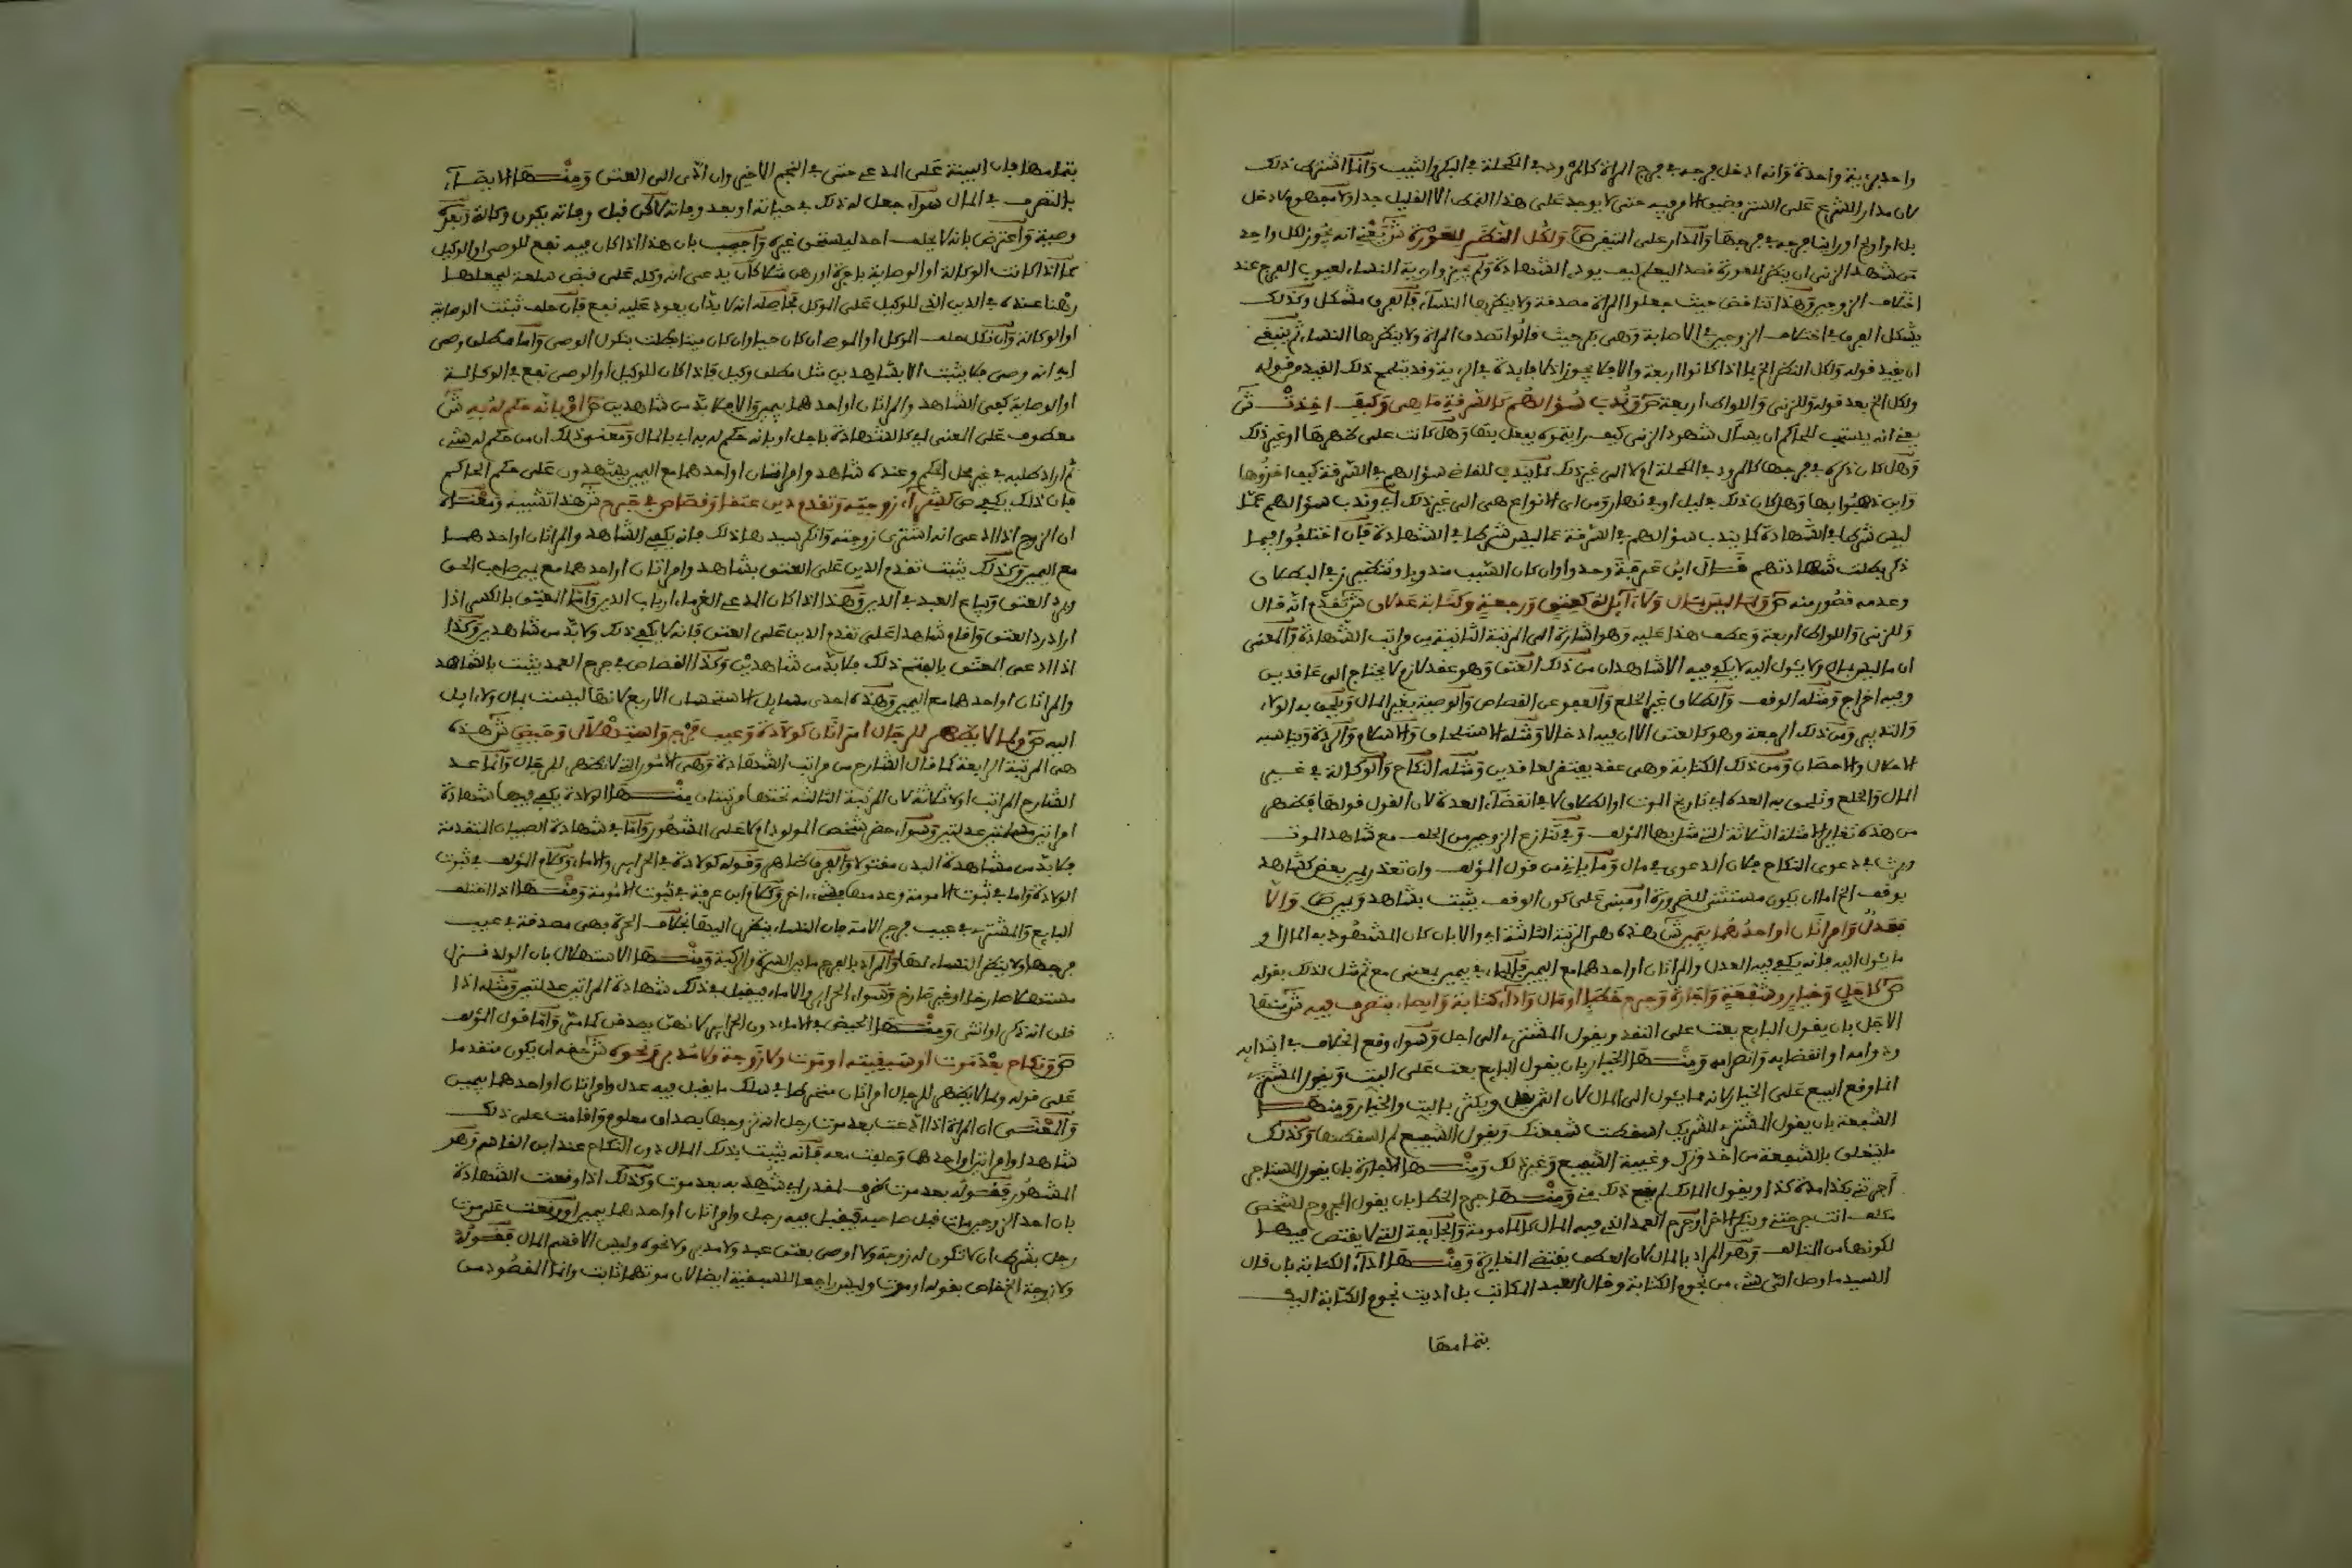 واحد برؤية واحدة وانه ادخل فرجه في فرج المراة كالمرود في المكحلة في البكر والثيب وانما اشترط ذلك
لان مدار الشرع على الستر وضيق الامر فيه حتى لا يوجد على هذا النمط الا القليل جدا ولا مفهوم لادخل
بل او اولج او راينا فرجه في فرجها والمدار على التيقن ص ولكل النظر للعورة ش يعني انه يجوز لكل واحد
من شهد الزنى ان ينظر للعورة قصدا ليعلم كيف يودي الشهادة ولم يجيزوا رية النساء لعيوب الفرج عند
اختلاف الزوجين وهذا تناقض حيث جعلوا المراة مصدقة ولا ينظرها النساء فالفرق مشكل وكذلك
يشكل الفرق في اختلاف الزوجين في الاصابة وهي بكر حيث قالوا تصدق المراة ولا ينظرها النساء ثم ينبغي
ان يقيد قوله ولكل النظر الخ بما اذا كانوا اربعة والا فلا يجوز اذ لا فايدة في الرية وقد يتلمح ذلك القيد من قوله
ولكل الخ بعد قوله وللزنى واللواط اربعة ص وندب سؤالهم كالسرقة ما هي وكيف اخذت ش
يعني انه يستحب للحاكم ان يسأل شهود الزنى كيف رايتموه يفعل بها وهل كانت على ظهرها او غير ذلك
وهل كان ذكره في فرجها كالمرود في المكحلة او لا الى غير ذلك كما يندب للقاضي سؤالهم في السرقة كيف اخذوها
واين ذهبوا بها وهل كان ذلك في ليل او في نهار ومن اي الانواع هي الى غير ذلك اي وندب سؤالهم عما
ليس شرطا في الشهادة كما يندب سؤالهم في السرقة عما ليس شرطا في الشهادة فان اختلفوا فيما
ذكر بطلت شهادتهم قال ابن عرفة وحدوا وان كان السبب مندوبا وتنظير ز في البطلان
وعدمه قصور منه ص ولما ليس بمال ولا ءايل له كعتق ورجعة وكتابة عدلان ش تقدم انه قال
وللزنى واللواط اربعة وعطف هذا عليه وهو اشارة الى المرتبة الثانية من مراتب الشهادة والمعنى
ان ما ليس بمال ولا يئول اليه لا يكفي فيه الا شاهدان من ذلك العتق وهو عقد لازم لا يحتاج الى عاقدين
وفيه اخراج ومثله الوقف والطلاق غير الخلع والعفو عن القصاص والوصية بغير المال ويلحق به الولاء
والتدبير ومن ذلك الرجعة وهو كالعتق الا ان فيه ادخالا ومثله الاستلحاق والاسلام والردة ويناسبه
الاحلال والاحصان ومن ذلك الكتابة وهي عقد يفتقر لعاقدين ومثله النكاح والوكالة في غير
المال والخلع وتلحق به العدة اي تاريخ الموت او الطلاق لا في انقضاء العدة لان القول قولها فظهر
من هذه تغاير الامثلة الثلاثة التي مثل بها المؤلف وفي تنازع الزوجين من الحلف مع شاهد الموت
ورث في دعوى النكاح فلان الدعوى في مال وما ياتي من قول المؤلف وان تعذر يمين بعض كشاهد
بوقف الخ اما ان يكون مستثنى للضرورة او مبني على كون الوقف يثبت بشاهد ويمين ص والا
فعدل وامراتان او احدهما بيمين ش هذه هي المرتبة الثالثة اي والا بان كان المشهود به المال او
ما يئول اليه فانه يكفي فيه العدل والمراتان او احدهما مع اليمين فالباء في بيمين بمعنى مع ثم مثل لذلك بقوله
ص كاجل وخيار وشفعة واجارة وجرح خطا او مال واداء كتابة وايصاء بتصرف فيه ش منها
الاجل بان يقول البايع بعت على النقد ويقول المشتري الى اجل وسواء وقع الخلاف في ابتدايه
ودوامه او انقضايه وانصرامه ومنها الخيار بان يقول البايع بعت على البت ويقول المشتري
انما وقع البيع على الخيار لانه مما يئول الى المال لان الثمن يقل ويكثر بالبت والخيار ومنها
الشفعة بان يقول المشتري للشريك اسقطت شفعتك ويقول الشفيع لم اسقطها وكذلك
ما يتعلق بالشفعة من اخذ وترك وغيبة الشفيع وغير ذلك ومنها الاجارة بان يقول المستاجر
آجرتني بكذا مدة كذا ويقول المالك لم يقع ذلك مني ومنها جرح الخطا بان يقول المجروح لشخص
مكلف انت جرحتني وينكر الاخر او جرح العمد الذي فيه المال كالمامومة والجايفة التي لا يقتص فيها
لكونها من المتالف وهو المراد بالمال لان العطف يقتضي المغايرة ومنها اداء الكتابة بان قال
السيد ما وصل الي شيء من نجوم الكتابة وقال العبد المكاتب بل اديت نجوم الكتابة اليك
بتمامها
بتمامها فان البينة على المدعي حتى في النجم الاخير وان ادى الى العتق ومنها الايصاء
بالتصرف في المال سواء جعل له ذلك في حياته او بعد وفاته لاكن قبل وفاته يكون وكالة وبعده
وصية واعترض بانه لا يحلف احد ليستحق غيره واجيب بان هذا اذا كان فيه نفع للوصي او الوكيل
كما اذا كانت الوكالة او الوصاية باجرة او رهن مثلا كان يدعي انه وكله على قبض سلعة ليجعلها
رهنا عنده في الدين الذي للوكيل على الموكل فحاصله انه لا بد ان يعود عليه نفع فان حلف ثبتت الوصاية
او الوكالة وان نكل حلف الموكل او الموصي ان كان حيا وان كان ميتا بطلت بنكول الوصي واما مطلق وصي
اي انه وصي فلا يثبت الا بشاهدين مثل مطلق وكيل فاذا كان للوكيل او الوصي نفع في الوكالة
او الوصاية كفى الشاهد والمراتان او احدهما بيمين والا فلا بد من شاهدين ص او بانه حكم له به ش
معطوف على المعنى اي كالشهادة باجل او بانه حكم له به اي بالمال ومعنى ذلك ان من حكم له بشيء
ثم اراد طلبه في غير محل الحكم وعنده شاهد وامراتان او احدهما مع اليمين يشهدون على حكم الحاكم
فان ذلك يكفي ص كشراء زوجته وتقدم دين عتقا وقصاص في جرح ش هذا تشبيه ومعناه
ان الزوج اذا ادعى انه اشترى زوجته وانكر سيدها ذلك فانه يكفي الشاهد والمراتان او احدهما
مع اليمين وكذلك يثبت تقدم الدين على العتق بشاهد وامراتان او احدهما مع يمين صاحب الحق
ويرد العتق ويباع العبد في الدين وهذا اذا كان المدعي الغرماء ارباب الدين واما المعتق بالكسر اذا
اراد رد العتق واقام شاهدا على تقدم الدين على العتق فانه لا يكفي ذلك ولا بد من شاهدين وكذا
اذا ادعى المعتق بالفتح ذلك فلا بد من شاهدين وكذا القصاص في جرح العمد يثبت بالشاهد
والمراتان او احدهما مع اليمين وهذه احدى مسايل الاستحسان الاربع لانها ليست بمال ولا ءايل
اليه ص ولما لا يظهر للرجال امراتان كولادة وعيب فرج واستهلال وحيض ش هذه
هي المرتبة الرابعة كما قال الشارح من مراتب الشهادة وهي الامور التي لا تظهر للرجال وانما عد
الشارح المراتب اولا ثلاثة لان المرتبة الثالثة تحتها مرتبتان منها الولادة يكفي فيها شهادة
امراتين مسلمتين عدلتين وسواء حضر شخص المولود ام لا على المشهور واما في شهادة الصبيان المتقدمة
فلا بد من مشاهدة البدن مقتولا والفرق ظاهر وقوله كولادة في الحراير والاماء وكلام المؤلف في ثبوت
الولادة واما في ثبوت الامومة وعدمها فشيء اخر وكلام ابن عرفة في ثبوت الامومة ومنها اذا اختلف
البايع والمشتري في عيب فرج الامة فان النساء ينظرن اليها بخلاف الحرة فهي مصدقة في عيب
فرجها ولا ينظر النساء لها والمراد بالفرج ما بين السرة والركبة ومنها الاستهلال بان الولد نزل
مستهلا صارخا او غير صارخ وسواء الحراير والاماء فيقبل في ذلك شهادة المراتين عدلتين ومثله اذا
قلن انه ذكر او انثى ومنها الحيض في الاماء دون الحراير لانهن يصدقن كما مر واما قول المؤلف
ص ونكاح بعد موت او سبقيته او موت ولا زوجة ولا مدبر ونحوه ش حقه ان يكون متقدما
على قوله ولما لا يظهر للرجال امراتان منخرطا في سلك ما يقبل فيه عدل وامراتان او احدهما بيمين
والمعنى ان المراة اذا ادعت بعد موت رجل انه تزوجها بصداق معلوم واقامت على ذلك
شاهدا وامراتين او احدهما وحلفت معه فانه يثبت بذلك المال دون النكاح عند ابن القاسم وهو
المشهور فقوله بعد موت ظرف لمقدر اي شهد به بعد موت وكذلك اذا وقعت الشهادة
بان احد الزوجين مات قبل صاحبه فيقبل فيه رجل وامراتان او احدهما بيمين او وقعت على موت
رجل بشرط ان لا تكون له زوجة ولا اوصى بعتق عبد ولا مدبر ولا نحوه وليس الا قسم المال فقوله
ولا زوجة الخ خاص بقوله او موت وليس راجعا للسبقية ايضا لان موتهما ثابت وانما المقصود من